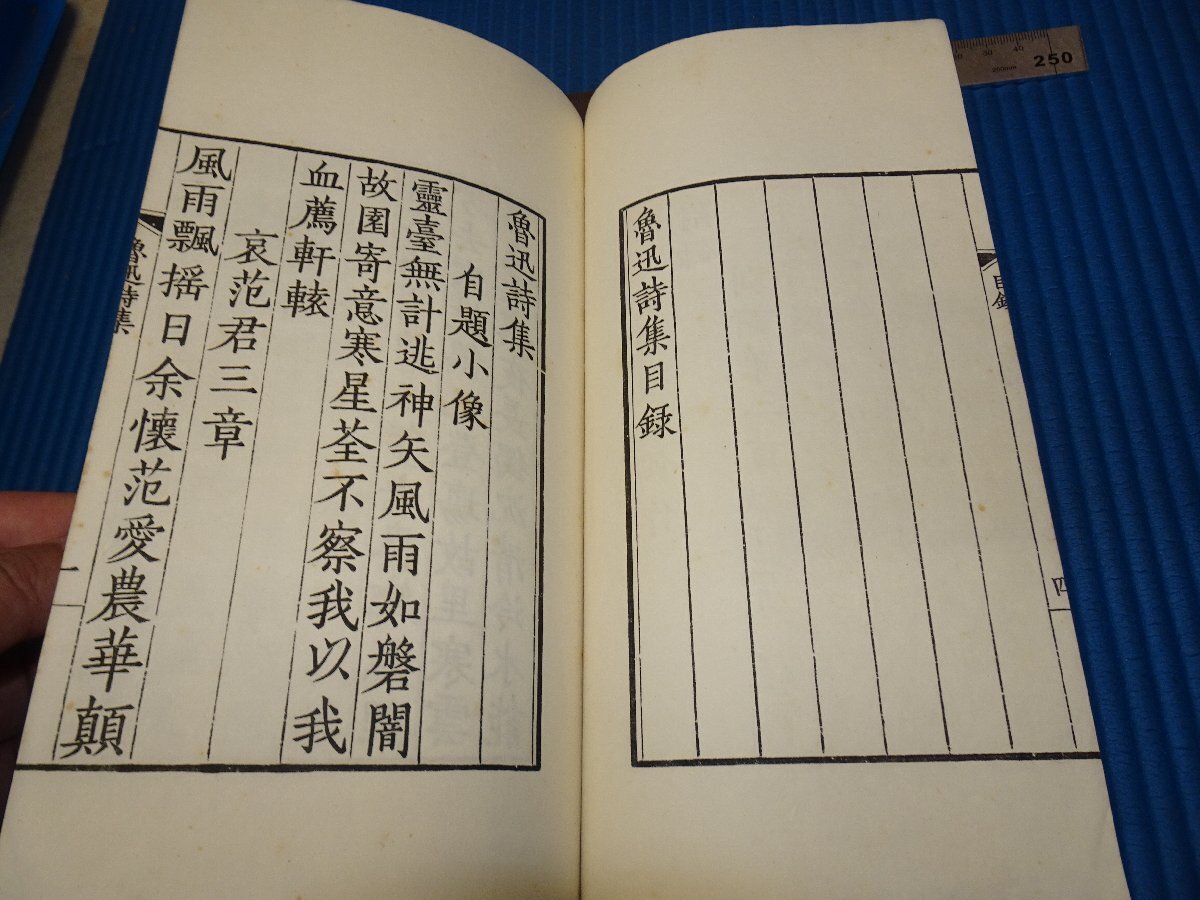 目錄
四
魯迅詩集目録
魯迅詩集
自題小像
靈臺無計逃神矢風雨如磐闇
故園寄意寒星荃不察我以我
血薦軒轅
哀范君三章
風雨飄摇日余懷范愛農華顛
魯迅詩集
一
30 40
250